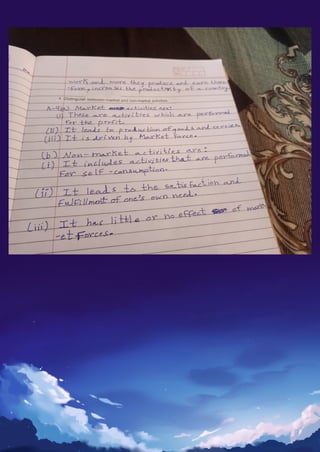 work and more they produce and earn there
-fore, increases the productivity of a country
4. Distinguish between market and non-market activities.
A-4(a) Market activities are:
(i) These are activities which are performed
for the profit.
(ii) It leads to production of goods and services
(iii) It is driven by Market Force.
(b) Non-market activities are:
(i) It includes activities that are performed
For self-consumption.
(ii) It leads to the satisfaction and
Fulfillment of one's own need.
(iii) It has little or no effect of mark
-et Forces.